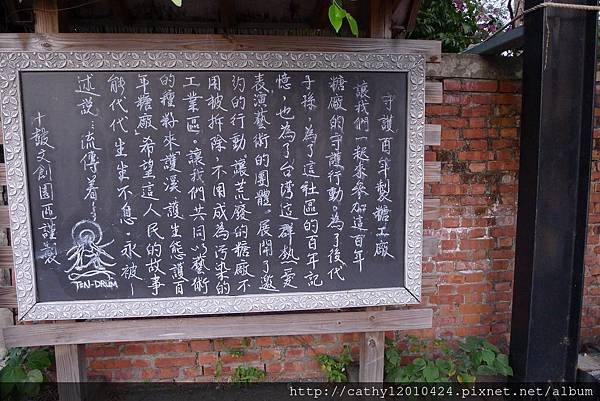 守護百年製糖工廠
讓我們一起來參加這百年
糖廠的守護行動。為了後代
子孫，為了這社區的百年記
憶，也為了台灣這群熱愛
表演藝術的團體。展開了邀
約的行動，讓荒廢的糖廠不
用被拆除，不用成為污染的
工業區。讓我們共同以藝術
的種籽來護溪、護生態護百
年糖廠，希望這人民的故事
能代代生生不息，永被～
述說，流傳著～
十鼓文創園區謹製
TEN-DRUM
http://cathy12010424.pixnet.net/album